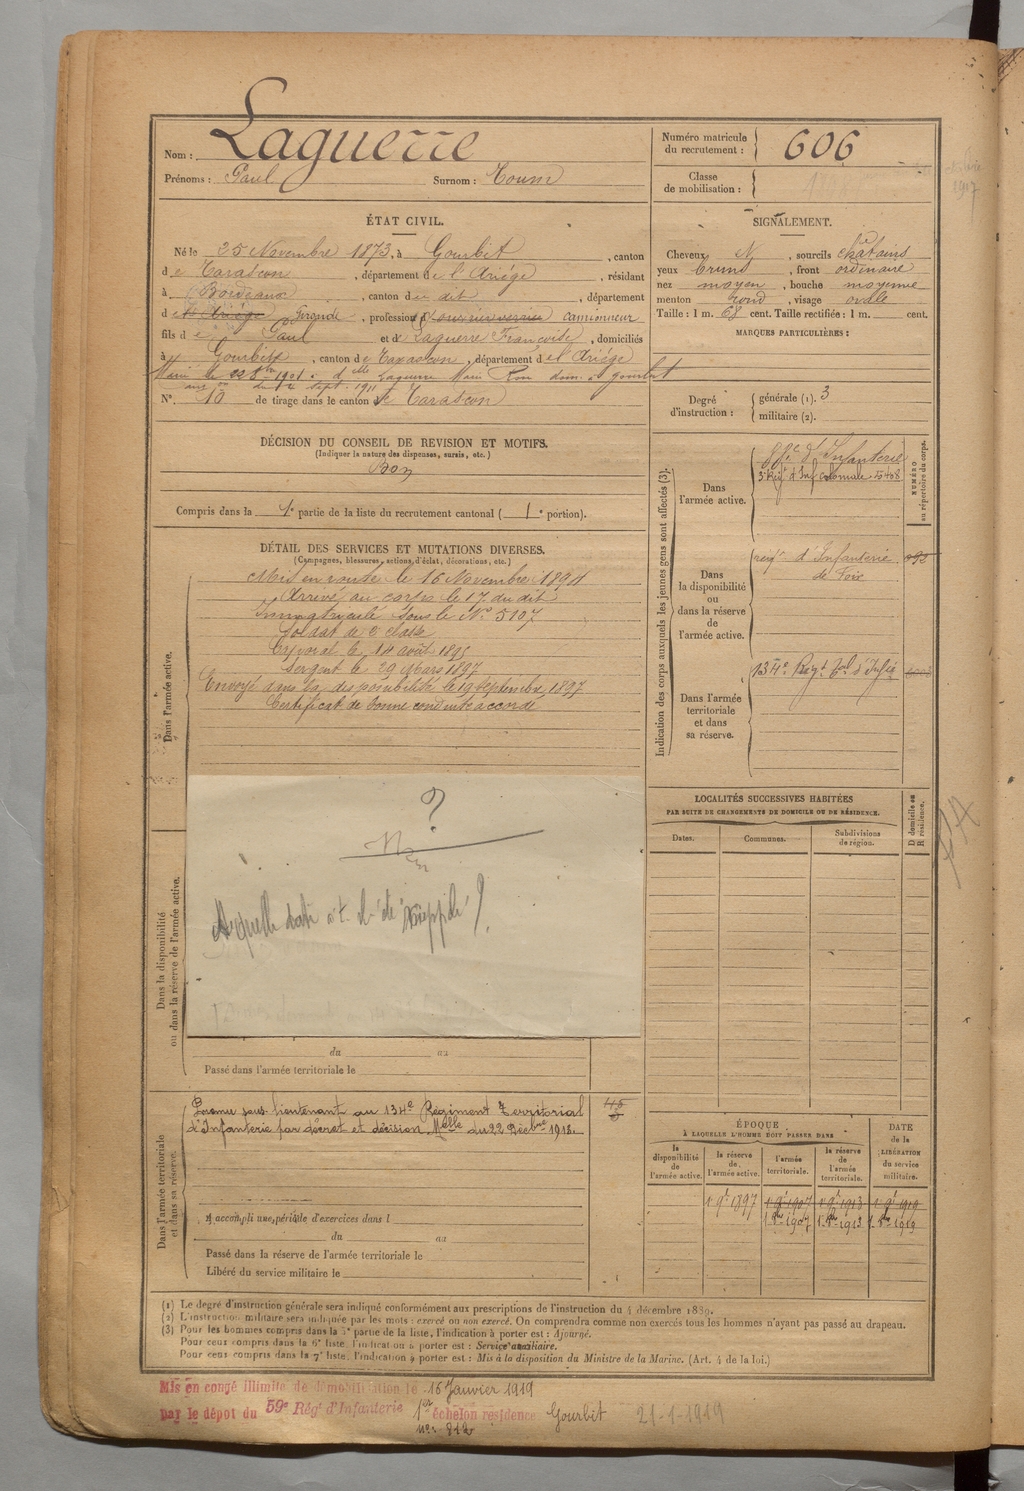 Nom : Laguerre
Prénoms : Paul Surnom : Toum
Numéro matricule du recrutement : 606
Classe de mobilisation :
ÉTAT CIVIL.
Né le 25 Novembre 1873, à Gourbit, canton
de Tarascon, département de l'Ariége, résidant
à Bordeaux, canton du dit, département
de Gironde, profession d camionneur
fils de Paul et de Laguerre Françoise, domiciliés
à Gourbit, canton de Tarascon, département de l'Ariége
Marié le 22 1901 à dlle Laguerre Marie dom. à Gourbit
sept. 1911
N° 10 de tirage dans le canton de Tarascon
SIGNALEMENT.
Cheveux N, sourcils châtains
yeux bruns, front ordinaire
nez moyen, bouche moyenne
menton rond, visage ovale
Taille : 1 m. 68 cent. Taille rectifiée : 1 m. cent.
MARQUES PARTICULIÈRES :
Degré d'instruction : générale (1). 3
militaire (2).
DÉCISION DU CONSEIL DE REVISION ET MOTIFS.
(Indiquer la nature des dispenses, sursis, etc.)
Bon
Compris dans la 1e partie de la liste du recrutement cantonal (1e portion).
DÉTAIL DES SERVICES ET MUTATIONS DIVERSES.
(Campagnes, blessures, actions d'éclat, décorations, etc.)
Dans l'armée active.
Mis en route le 16 Novembre 1894
Arrivé au corps le 17 du dit
Immatriculé sous le No 5107
Soldat de 2e classe
Caporal le 14 août 1895
Sergent le 29 Mars 1897
Envoyé dans la disponibilité le 19 septembre 1897
Certificat de bonne conduite accordé
?
A quelle date a-t-il été rappelé ?
Dans la disponibilité
ou dans la réserve de l'armée active.
du au
Passé dans l'armée territoriale le
Dans l'armée territoriale
et dans sa réserve.
Promu sous-lieutenant au 134e Régiment Territorial
d'Infanterie par décret et décision Melle du 22 Décbre 1912.
A accompli une période d'exercices dans l
du au
Passé dans la réserve de l'armée territoriale le
Libéré du service militaire le
Indication des corps auxquels les jeunes gens sont affectés (3).
NUMÉRO
au répertoire du corps.
Dans l'armée active.
d'Infanterie
3e Régt d'Inf coloniale 5408
Dans la disponibilité ou dans la réserve de l'armée active.
régt d'Infanterie
de Foix
Dans l'armée territoriale et dans sa réserve.
134e Regt Tal d'Infie
LOCALITÉS SUCCESSIVES HABITÉES
PAR SUITE DE CHANGEMENTS DE DOMICILE OU DE RÉSIDENCE.
Dates. Communes. Subdivisions de région.
D domicile ou
R résidence.
ÉPOQUE
À LAQUELLE L'HOMME DOIT PASSER DANS
DATE de la LIBÉRATION du service militaire.
la disponibilité de l'armée active. la réserve de l'armée active. l'armée territoriale. la réserve de l'armée territoriale.
1 9t 1897 1 9t 1907 1 9t 1913 1 9t 1919
1907 1913 1919
(1) Le degré d'instruction générale sera indiqué conformément aux prescriptions de l'instruction du 4 décembre 1889.
(2) L'instruction militaire sera indiquée par les mots : exercé ou non exercé. On comprendra comme non exercés tous les hommes n'ayant pas passé au drapeau.
(3) Pour les hommes compris dans la 5e partie de la liste, l'indication à porter est : Ajourné.
Pour ceux compris dans la 6e liste, l'indication à porter est : Service auxiliaire.
Pour ceux compris dans la 7e liste, l'indication à porter est : Mis à la disposition du Ministre de la Marine. (Art. 4 de la loi.)
Mis en congé illimité de démobilisation le 16 Janvier 1919
par le dépot du 59e Régt d'Infanterie 1er échelon résidence Gourbit 21-1-1919
no 812